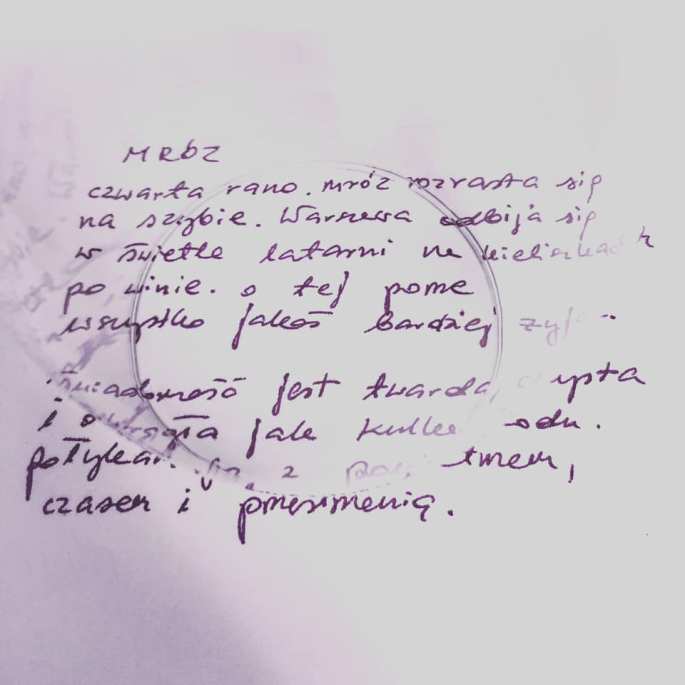 MRÓZ
czwarta rano. mróz rozrasta się
na szybie. Warszawa odbija się
w świetle latarni na kieliszkach
po winie. o tej porze
wszystko jakoś bardziej żyje.
świadomość jest twarda, czysta
i okrągła jak kulka lodu.
połykam ją z powietrzem,
czasem i przestrzenią.